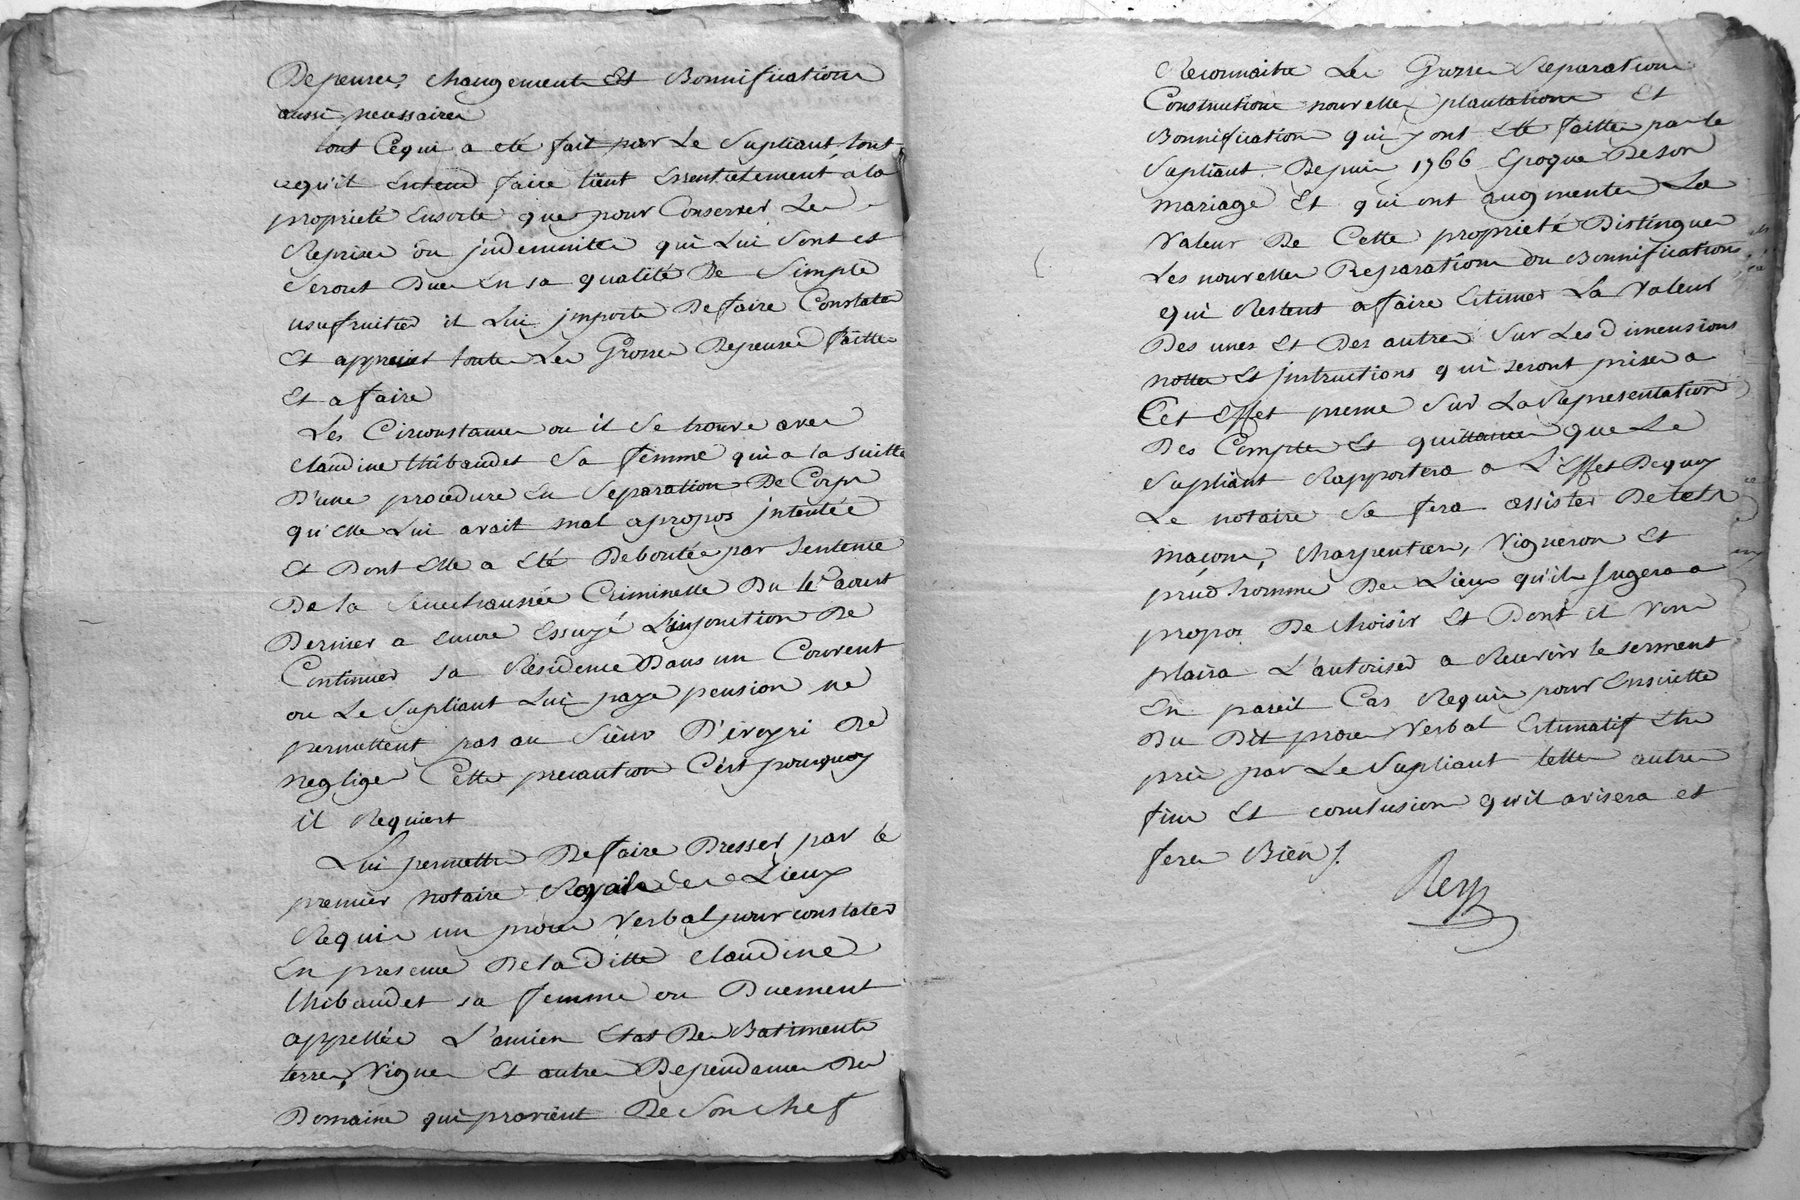 Depenses, changements Et Bonnifications
aussi necessaires
tout Cequi a eté fait par Le Supliant tout
cequ'il Entend faire tient Essentielement a la
proprieté Ensorte que pour Conserver Les
Reprises ou jndemnites qui Lui sont et
seront Dues En sa qualité De Simple
usufruitier il Lui jmporte Defaire Constater
Et apprecier toutes Les Grosses Depenses faittes
Et a faire
Les Circonstances ou il se trouve avec
claudine thibaudet sa femme qui a la suitte
D'une procedure En Separation De Corps
qu'elle Lui avait mal apropos jntentée
Et Dont Elle a Eté Deboutée par Sentence
De la Senechaussée Criminelle Du aoust
Dernier a encore Essuyé L'injonction De
Continuer sa Residence Dans un Couvent
ou Le Supliant Lui paye pension ne
permettent pas au Sieur D'iveyri De
negliger Cette precaution C'est pourquoy
il Requiert
Lui permettre De faire Dresser par le
premier notaire Royal des Lieux
Requis un proces Verbal pour constater
En presence De la ditte claudine
thibaudet sa femme ou Duement
appellée L'ancien Etat Des Batiments
terres, Vignes Et autres Dependances Du
Domaine qui provient De Son chef
Reconnaitre Les Grosses Reparations
Constructions nouvelles plantations Et
Bonnifications qui y ont Eté faittes par le
Supliant Depuis 1766 Epoque De son
mariage Et qui ont augmenté La
Valeur De Cette proprieté Distinguer
Les nouvelles Reparations ou Bonnifications
qui Restent a faire Estimer La Valeur
Des unes Et Des autres Sur Les dimensions
nottes Et jnstructions qui seront prises a
Cet Effet meme Sur La Representation
Des Comptes Et quittances que Le
Supliant Rapportera a L'Effet Dequoy
Le notaire Se fera assister De tels
maçons, charpentiers, Vignerons Et
prud'hommes Des Lieux qu'il Jugera a
propos De choisir Et Dont il Vous
plaira L'autoriser a Recevoir le serment
En pareil Cas Requis pour Ensuitte
Du Dit proces Verbal Estimatif Etre
pris par Le Supliant telles autres
fins Et conclusions qu'il avisera et
ferez Bien /.
Rey